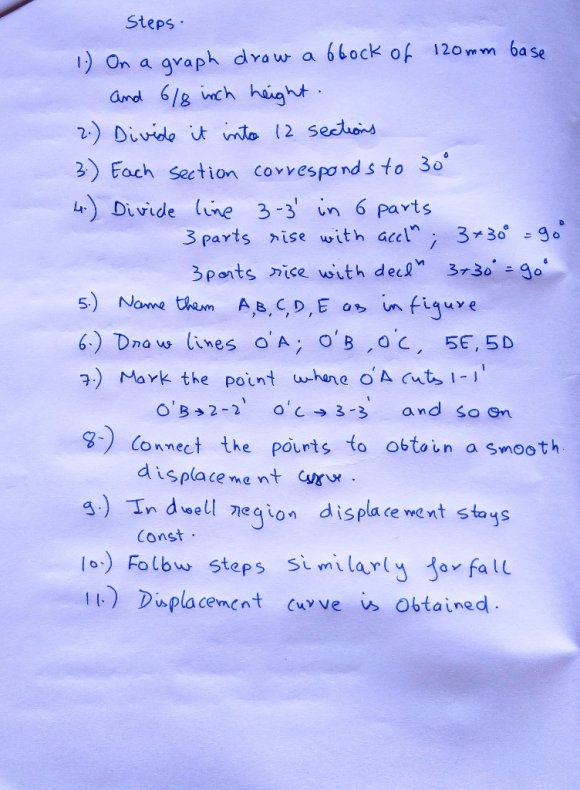 Steps.
1.) On a graph draw a block of 120mm base
and 6/8 inch height.
2.) Divide it into 12 sections
3.) Each section corresponds to 30°
4.) Divide line 3-3' in 6 parts
3 parts rise with accln ; 3×30° = 90°
3 parts rise with decln 3×30° = 90°
5.) Name them A,B,C,D,E as in figure
6.) Draw lines O'A; O'B, O'C, 5E, 5D
7.) Mark the point where O'A cuts 1-1'
O'B→2-2' O'C→3-3' and so on
8.) Connect the points to obtain a smooth
displacement curve.
9.) In dwell region displacement stays
const.
10.) Follow steps similarly for fall
11.) Displacement curve is obtained.